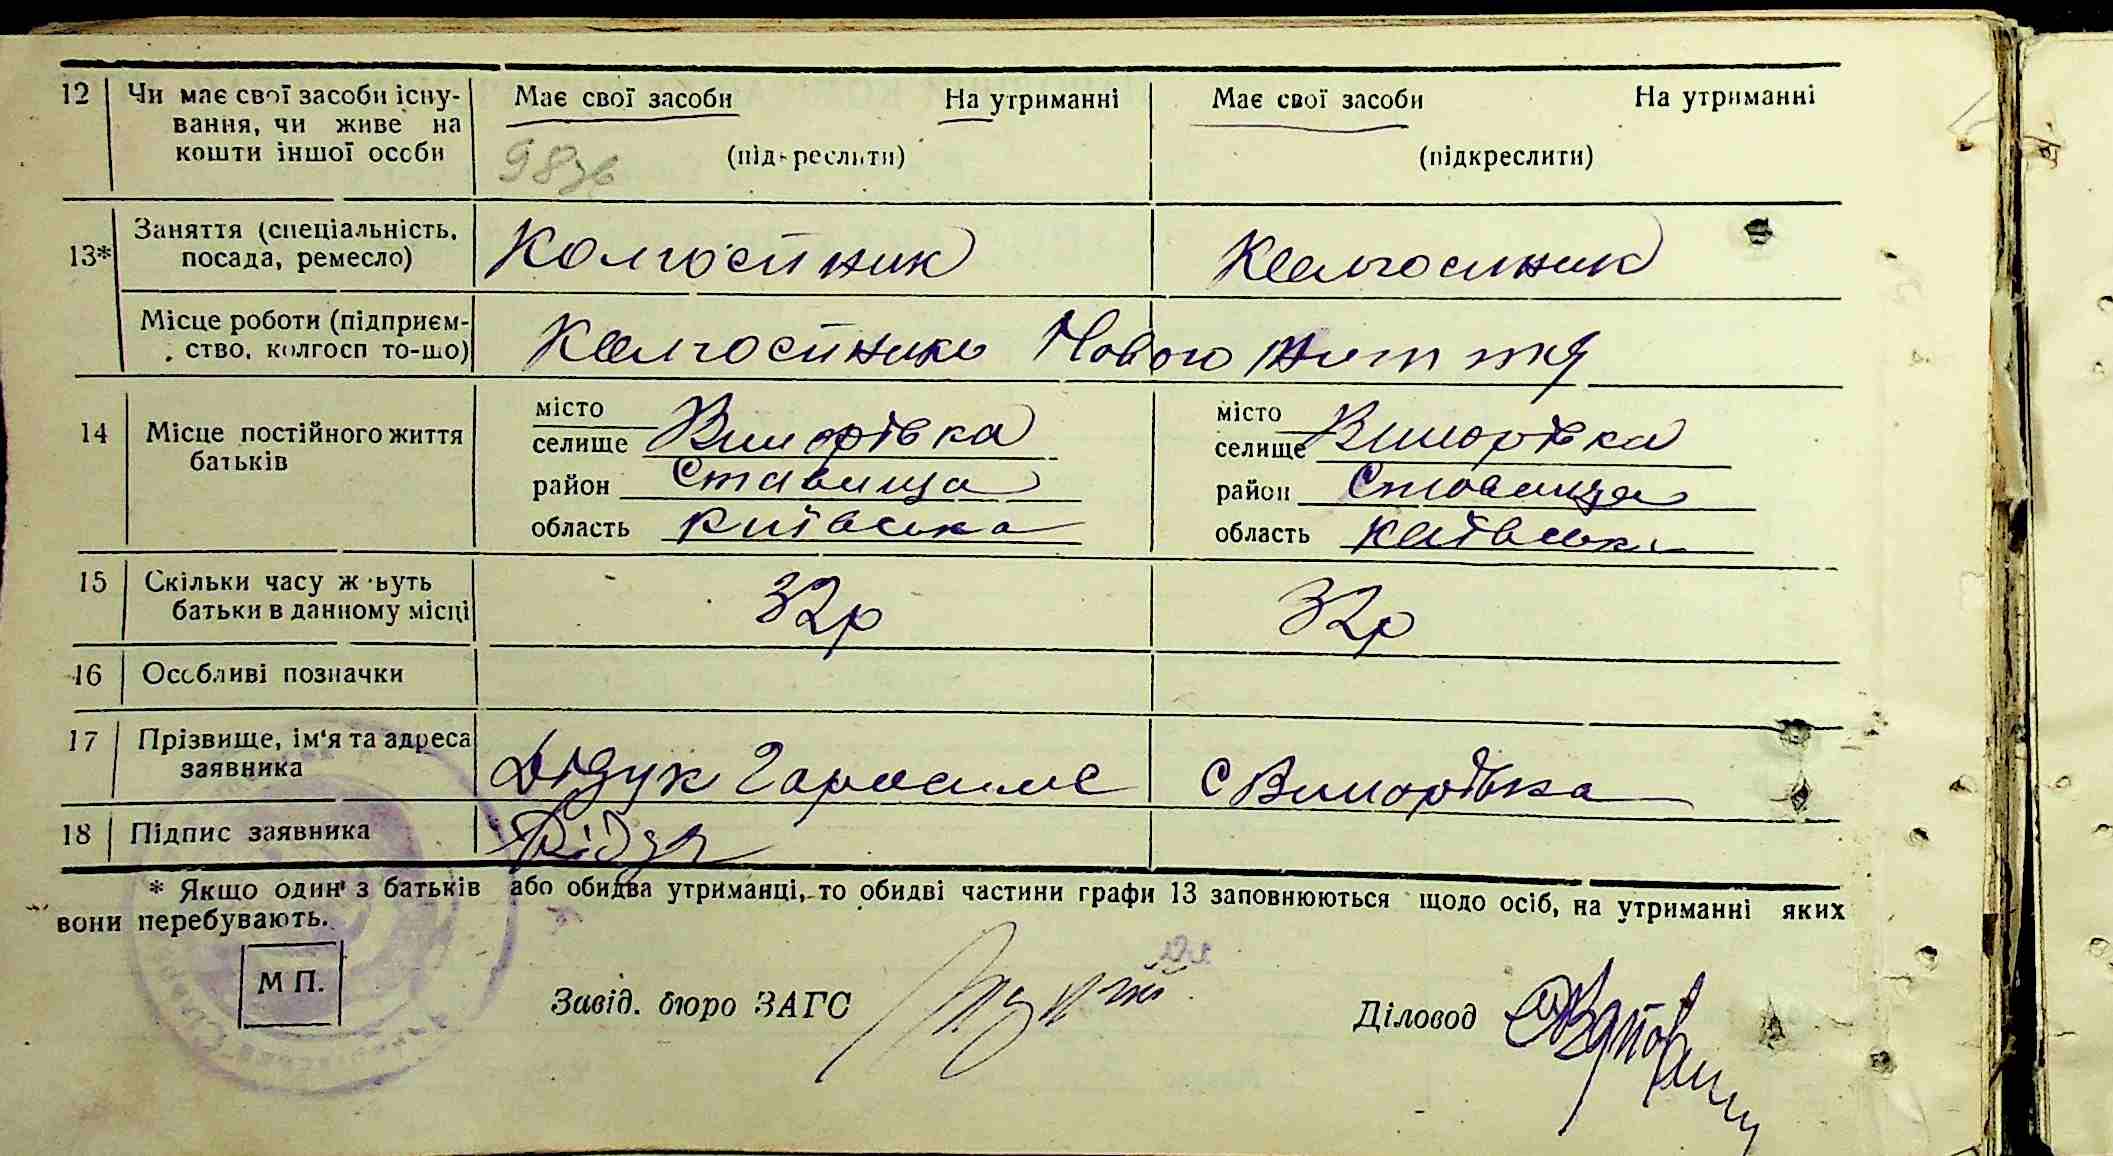 12 Чи має свої засоби існу- Має свої засоби На утриманні Має свої засоби На утриманні
вання, чи живе на
кошти іншої особи (підкреслити) (підкреслити)
983в
13* Заняття (спеціальність, Колгоспник Колгоспник
посада, ремесло)
Місце роботи (підприєм- Колгоспники Нового життя
ство, колгосп то-що)
14 Місце постійного життя місто місто
батьків селище Винорівка селище Винорівка
район Ставища район Ставища
область Київська область Київська
15 Скільки часу живуть 32р 32р
батьки в данному місці
16 Особливі позначки
17 Прізвище, ім'я та адреса Дідук Гарасиме с Винорівка
заявника
18 Підпис заявника Дідук
* Якщо один з батьків або обидва утриманці, то обидві частини графи 13 заповнюються щодо осіб, на утриманні яких
вони перебувають.
М П.
Завід. бюро ЗАГС Діловод